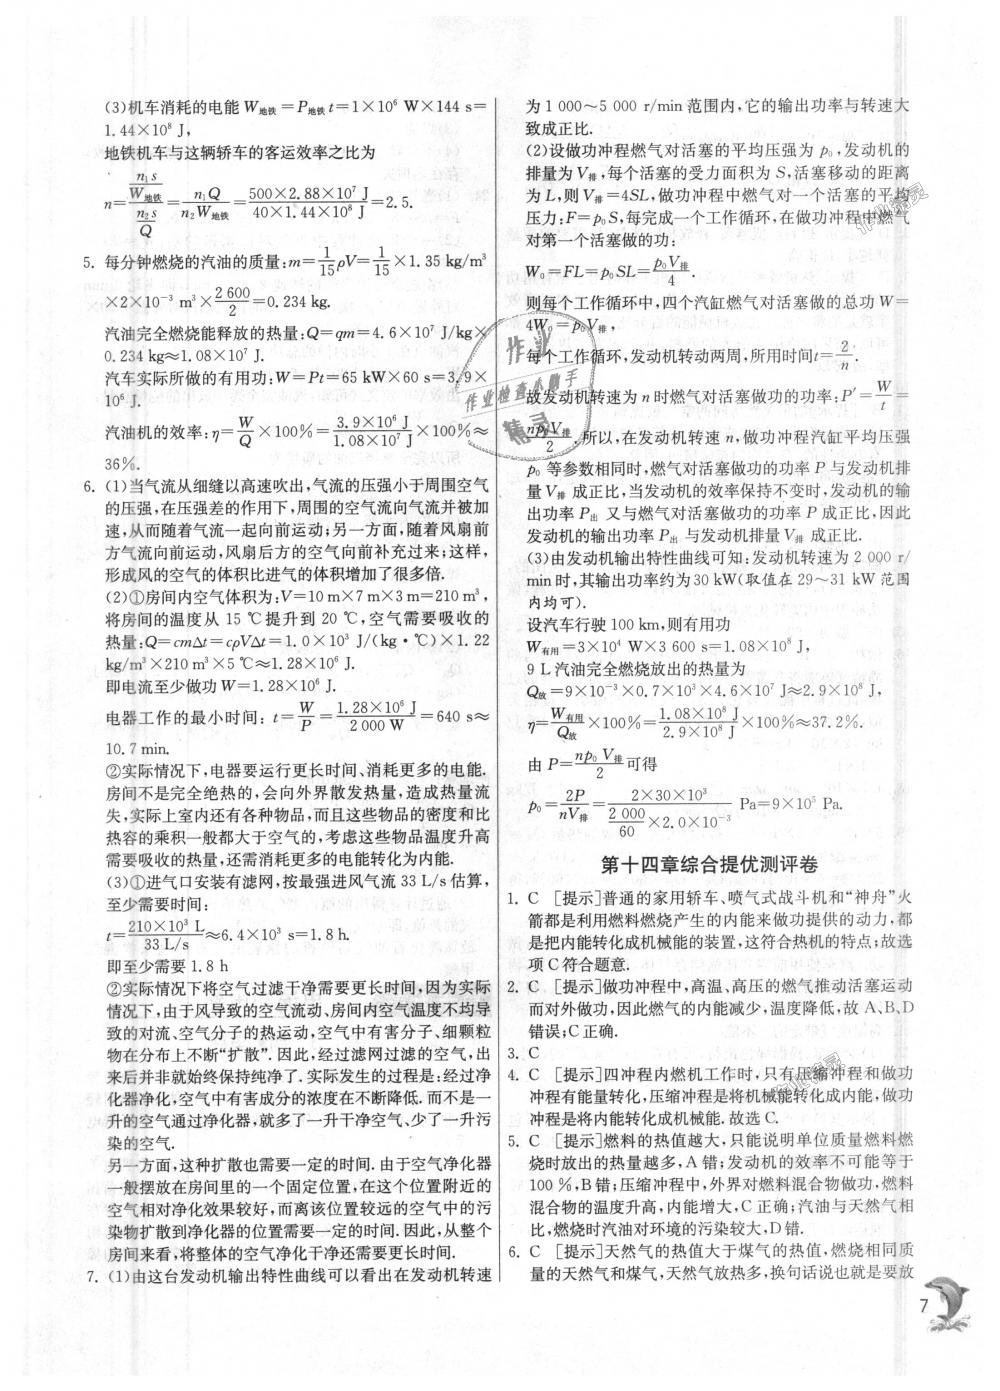 (3)机车消耗的电能 W地铁=P地铁t=1×10⁶ W×144 s=
1.44×10⁸ J,
地铁机车与这辆轿车的客运效率之比为
n=(n₁s/W地铁)/(n₂s/Q)=n₁Q/n₂W地铁=(500×2.88×10⁷ J)/(40×1.44×10⁸ J)=2.5.
5. 每分钟燃烧的汽油的质量:m=1/15ρV=1/15×1.35 kg/m³
×2×10⁻³ m³×2 600/2=0.234 kg.
汽油完全燃烧能释放的热量:Q=qm=4.6×10⁷ J/kg×
0.234 kg≈1.08×10⁷ J.
汽车实际所做的有用功:W=Pt=65 kW×60 s=3.9×
10⁶ J.
汽油机的效率:η=W/Q×100%=(3.9×10⁶ J)/(1.08×10⁷ J)×100%≈
36%.
6. (1)当气流从细缝以高速吹出,气流的压强小于周围空气
的压强,在压强差的作用下,周围的空气流向气流并被加
速,从而随着气流一起向前运动;另一方面,随着风扇前
方气流向前运动,风扇后方的空气向前补充过来;这样,
形成风的空气的体积比进气的体积增加了很多倍.
(2)①房间内空气体积为:V=10 m×7 m×3 m=210 m³,
将房间的温度从 15 ℃提升到 20 ℃,空气需要吸收的
热量:Q=cmΔt=cρVΔt=1.0×10³ J/(kg·℃)×1.22
kg/m³×210 m³×5 ℃≈1.28×10⁶ J.
即电流至少做功 W=1.28×10⁶ J.
电器工作的最小时间:t=W/P=(1.28×10⁶ J)/(2 000 W)=640 s≈
10.7 min.
②实际情况下,电器要运行更长时间、消耗更多的电能.
房间不是完全绝热的,会向外界散发热量,造成热量损
失,实际上室内还有各种物品,而且这些物品的密度和比
热容的乘积一般都大于空气的,考虑这些物品温度升高
需要吸收的热量,还需消耗更多的电能转化为内能.
(3)①进气口安装有滤网,按最强进风气流 33 L/s 估算,
至少需要时间:
t=(210×10³ L)/(33 L/s)≈6.4×10³ s=1.8 h.
即至少需要 1.8 h
②实际情况下将空气过滤干净需要更长时间,因为实际
情况下,由于风导致的空气流动、房间内空气温度不均导
致的对流、空气分子的热运动,空气中有害分子、细颗粒
物在分布上不断“扩散”.因此,经过滤网过滤的空气,出
来后并非就始终保持纯净了.实际发生的过程是:经过净
化器净化,空气中有害成分的浓度在不断降低.而不是一
升的空气通过净化器,就多了一升干净空气、少了一升污
染的空气.
另一方面,这种扩散也需要一定的时间.由于空气净化器
一般摆放在房间里的一个固定位置,在这个位置附近的
空气相对净化效果较好,而离该位置较远的空气中的污
染物扩散到净化器的位置需要一定的时间.因此,从整个
房间来看,将整体的空气净化干净还需要更长时间.
7. (1)由这台发动机输出特性曲线可以看出在发动机转速
为 1 000～5 000 r/min 范围内,它的输出功率与转速大
致成正比.
(2)设做功冲程燃气对活塞的平均压强为 p₀,发动机的
排量为 V排,每个活塞的受力面积为 S,活塞移动的距离
为 L,则 V排=4SL,做功冲程中燃气对一个活塞的平均
压力:F=p₀S,每完成一个工作循环,在做功冲程中燃气
对第一个活塞做的功:
W₀=FL=p₀SL=p₀V排/4.
则每个工作循环中,四个汽缸燃气对活塞做的总功 W=
4W₀=p₀V排,
每个工作循环,发动机转动两周,所用时间 t=2/n.
故发动机转速为 n 时燃气对活塞做功的功率:P′=W/t=
np₀V排/2.所以,在发动机转速 n,做功冲程汽缸平均压强
p₀ 等参数相同时,燃气对活塞做功的功率 P 与发动机排
量 V排 成正比,当发动机的效率保持不变时,发动机的输
出功率 P出 又与燃气对活塞做功的功率 P 成正比,因此
发动机的输出功率 P出 与发动机排量 V排 成正比.
(3)由发动机输出特性曲线可知:发动机转速为 2 000 r/
min 时,其输出功率约为 30 kW(取值在 29～31 kW 范围
内均可).
设汽车行驶 100 km,则有用功
W有用=3×10⁴ W×3 600 s=1.08×10⁸ J,
9 L 汽油完全燃烧放出的热量为
Q放=9×10⁻³×0.7×10³×4.6×10⁷ J≈2.9×10⁸ J,
η=W有用/Q放×100%=(1.08×10⁸ J)/(2.9×10⁸ J)×100%≈37.2%.
由 P=np₀V排/2可得
p₀=2P/nV排=(2×30×10³)/(2 000/60×2.0×10⁻³) Pa=9×10⁵ Pa.
第十四章综合提优测评卷
1. C [提示]普通的家用轿车、喷气式战斗机和“神舟”火
箭都是利用燃料燃烧产生的内能来做功提供的动力,都
是把内能转化成机械能的装置,这符合热机的特点;故选
项 C 符合题意.
2. C [提示]做功冲程中,高温、高压的燃气推动活塞运动
而对外做功,因此燃气的内能减少,温度降低,故 A、B、D
错误;C 正确.
3. C
4. C [提示]四冲程内燃机工作时,只有压缩冲程和做功
冲程有能量转化,压缩冲程是将机械能转化成内能,做功
冲程是将内能转化成机械能.故选 C.
5. C [提示]燃料的热值越大,只能说明单位质量燃料燃
烧时放出的热量越多,A 错;发动机的效率不可能等于
100%,B 错;压缩冲程中,外界对燃料混合物做功,燃料
混合物的温度升高,内能增大,C 正确;汽油与天然气相
比,燃烧时汽油对环境的污染较大,D 错.
6. C [提示]天然气的热值大于煤气的热值,燃烧相同质
量的天然气和煤气,天然气放热多,换句话说也就是要放
7
作业
作业检查小助手
精灵
作业精灵
作业精灵